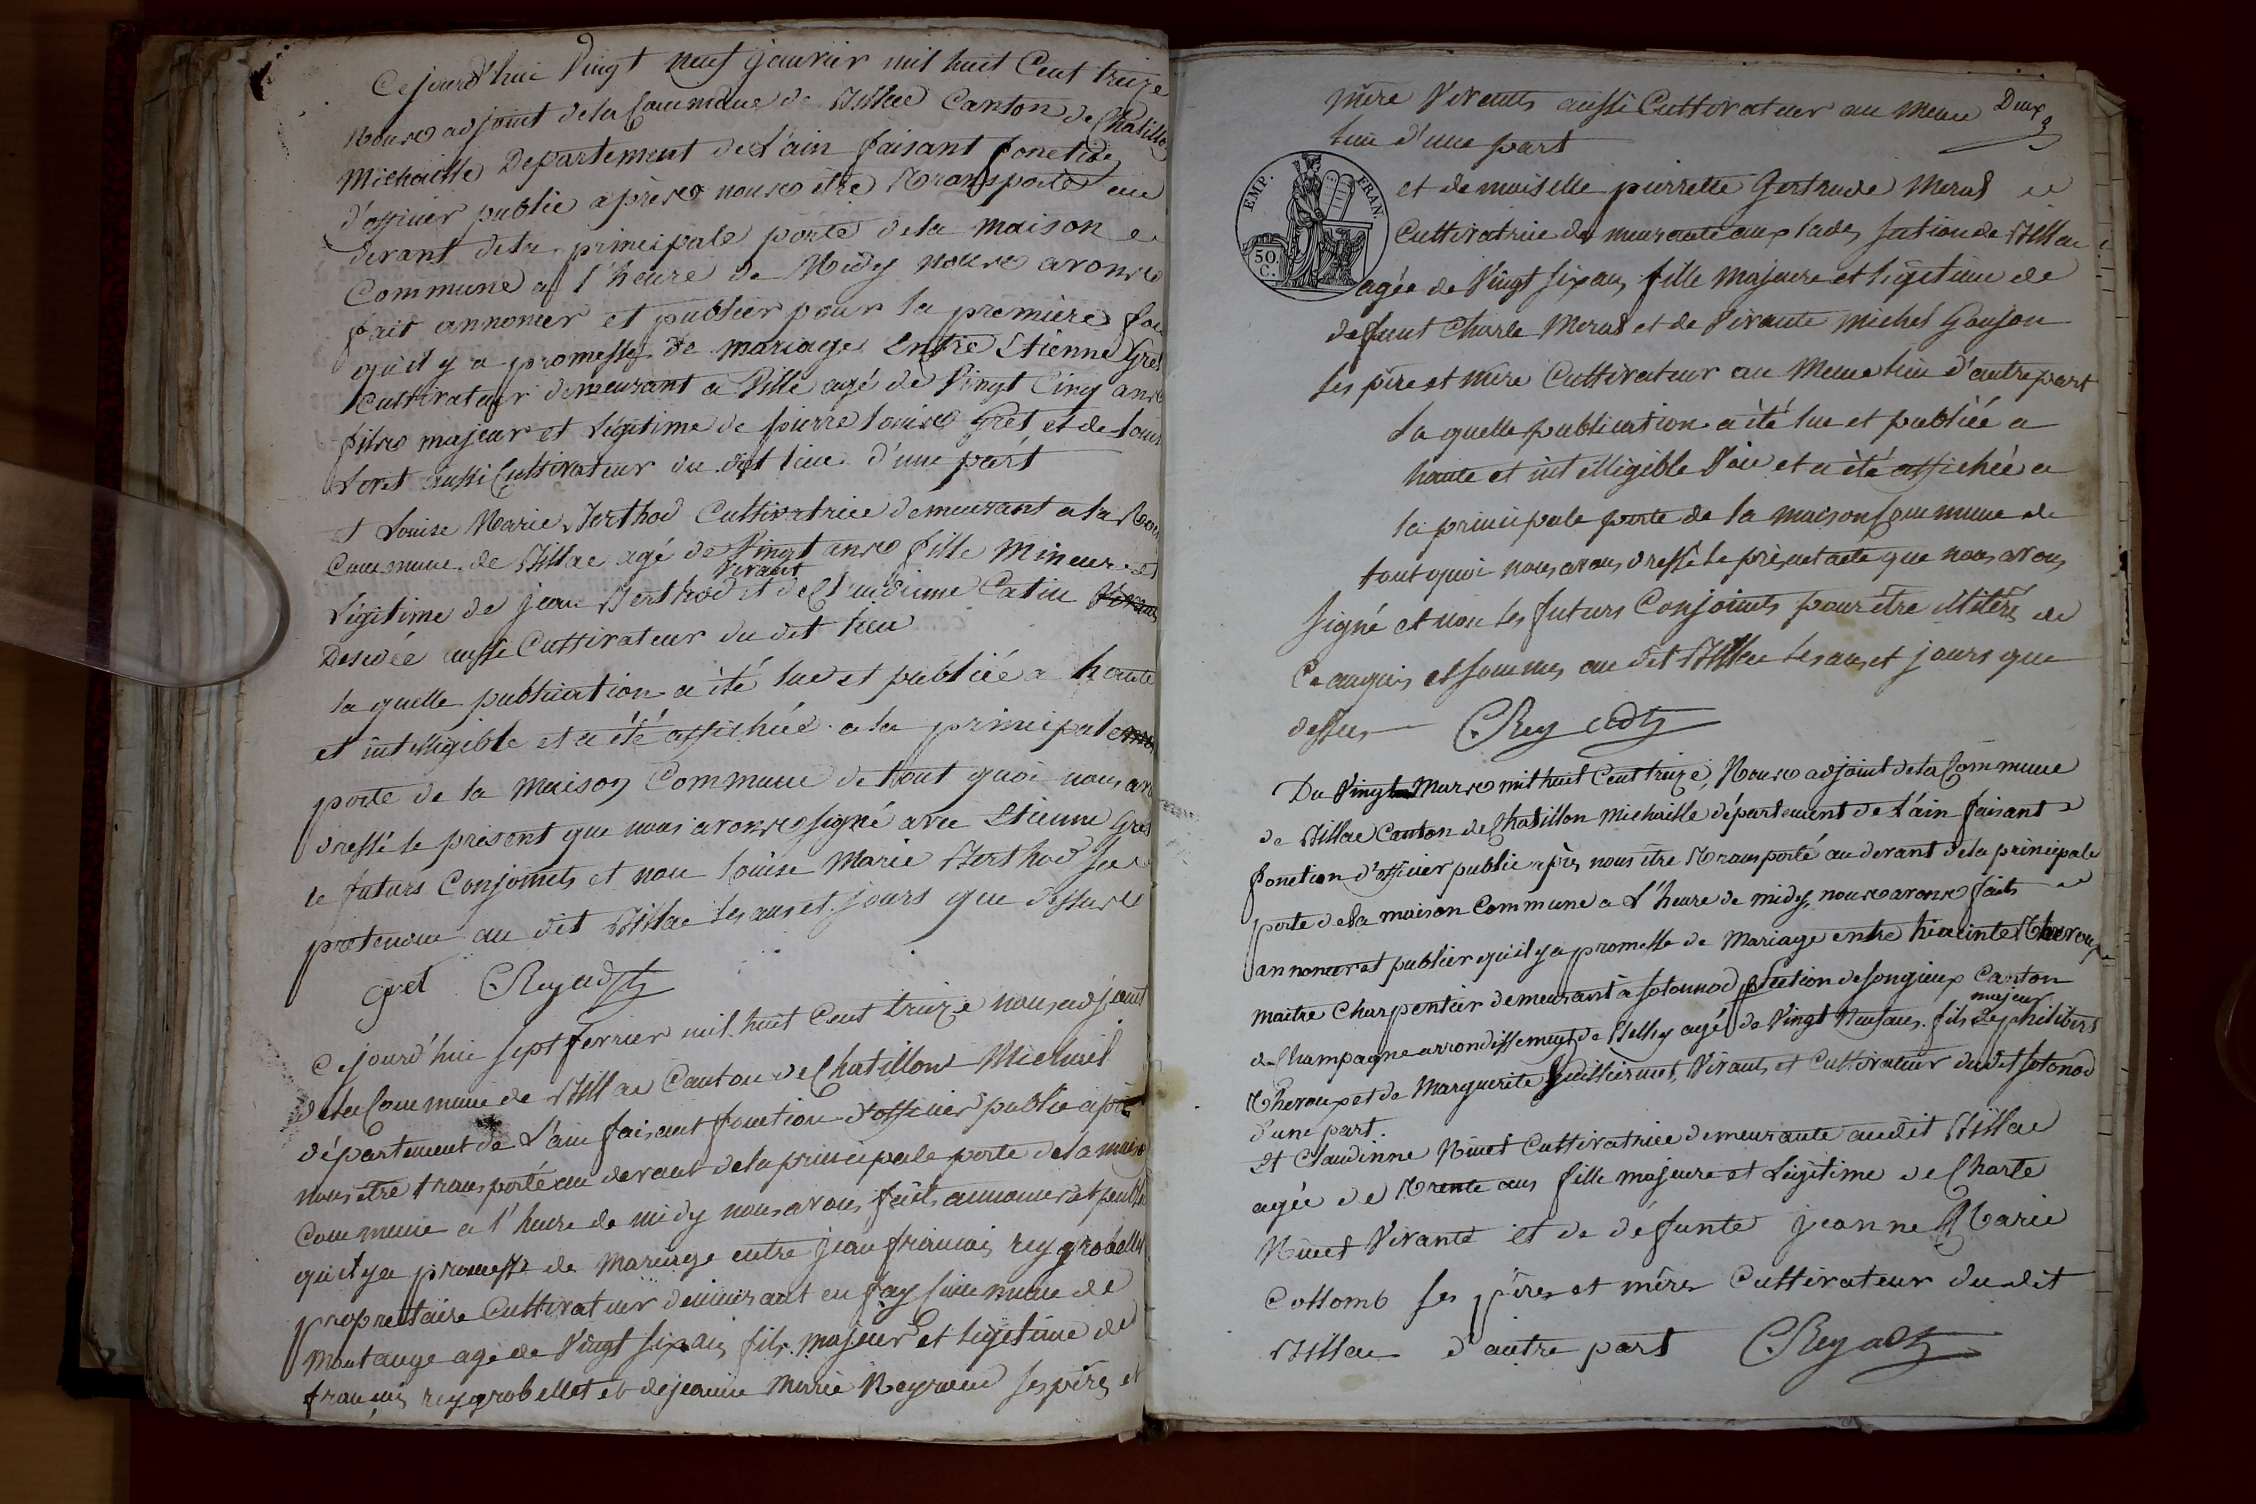 Ce jourd'hui Vingt neuf janvier mil huit Cent treize
Nouse adjoint de la Commune de Billiae Canton de Chatillon
Michaille Departement de L'ain faisant fonction
d'officier public aprèse nouse etre Transporté au
devant de la principale porte de la maison
Commune a l'heure de Midy nouse avonse
fait annoncer et publier pour la première foi
qu'il y a promesse de mariage Entre Etienne Gret
Cultivateur demeurant a Ville agé de Vingt Cinq anse
filse majeur et Légitime de pierre Louise Gret et de Louise
aussi Cultivateur du dit lieu d'une part
et Louise Marie Berthod Cultivatrice demeurant a la
Commune de Billiae agé de Vingt anse fille Mineure et
Vivant
Légitime de jean Berthod et de Claudinne Catin
Desedée aussi Cultivateur du dit lieu
la quelle publication a été lue et publiée a haute
et intelligible et a été affichée a la principale
porte de la maison Commune de tout quoi nous av
dressé le present que nous avonse signé avec Etienne Gret
le futurs Conjoints et non Louise Marie Berthod
au dit Billiae les ans et jours que dessuse
gret CReyadjt
Ce jourd'hui sept fevrier mil huit Cent treize nous adjoint
de la Commune de Billiae Canton de Chatillont Michail
département de L'ain faisant fonction d'officier public après
nous etre transporté au devant de la principale porte de la maison
Commune a l'heure de midy nous avons faits annoncer et publier
qu'il y a promesse de mariage entre jean françois rey grobellet
proprietaire Cultivateur demeurant en fay Commune de
Montange agé de Vingt six ans fils majeur et legitime de
françois rey grobellet et de jeanne Marie Reyraud ses père et
mère Vivants aussi Cultivateur au meme Deux
lieu d'une part
EMP. FRAN.
50. C.
et demoiselle pierrette Gertrude Meral
Cultivatrice demeurante aux lades section de Billiae
agée de Vingt six ans fille majeure et légitime de
defunt Charle Meral et de Vivante Michel Goujon
ses père et mère Cultivateur au Meme lieu d'autre part
La quelle publication a été lue et publiée a
haute et intelligible Voie et a été affichée a
la principale porte de la maison Commune de
tout quoi nous avons dressé le présent acte que nous avons
signé et non les futurs Conjoints pour être illitérés de
Ce anquis et sommes au dit Billiae les ans et jours que
dessus CReyadjt
Du Vingt Marse mil huit Cent treize, Nouse adjoint de la Commune
de Billiae Canton de Chatillon Michaille département de L'ain faisant
fonction d'officier public après nous être Transporté au devant de la principale
porte de la maison Commune a L'heure de midy, nouse avonse faits
annoncer et publier qu'il y a promesse de Mariage entre hiacinte Theroux
maitre Charpentier demeurant à sotonnod section de songieux Canton
majeur
de Champagne arrondissement de Belley agé de Vingt Neuf ans fils de philibert
Theroux et de Marguerite Guilliermet, Vivants et Cultivateur du dit sotonod
d'une part.
Et Claudinne Ninet Cultivatrice demeurante audit Billiae
agée de Trente ans fille majeure et Légitime de Charle
Ninet Vivante et de défunte jeanne Marie
Collomb ses père et mère Cultivateur du dit
Billiae d'autre part CReyadjt